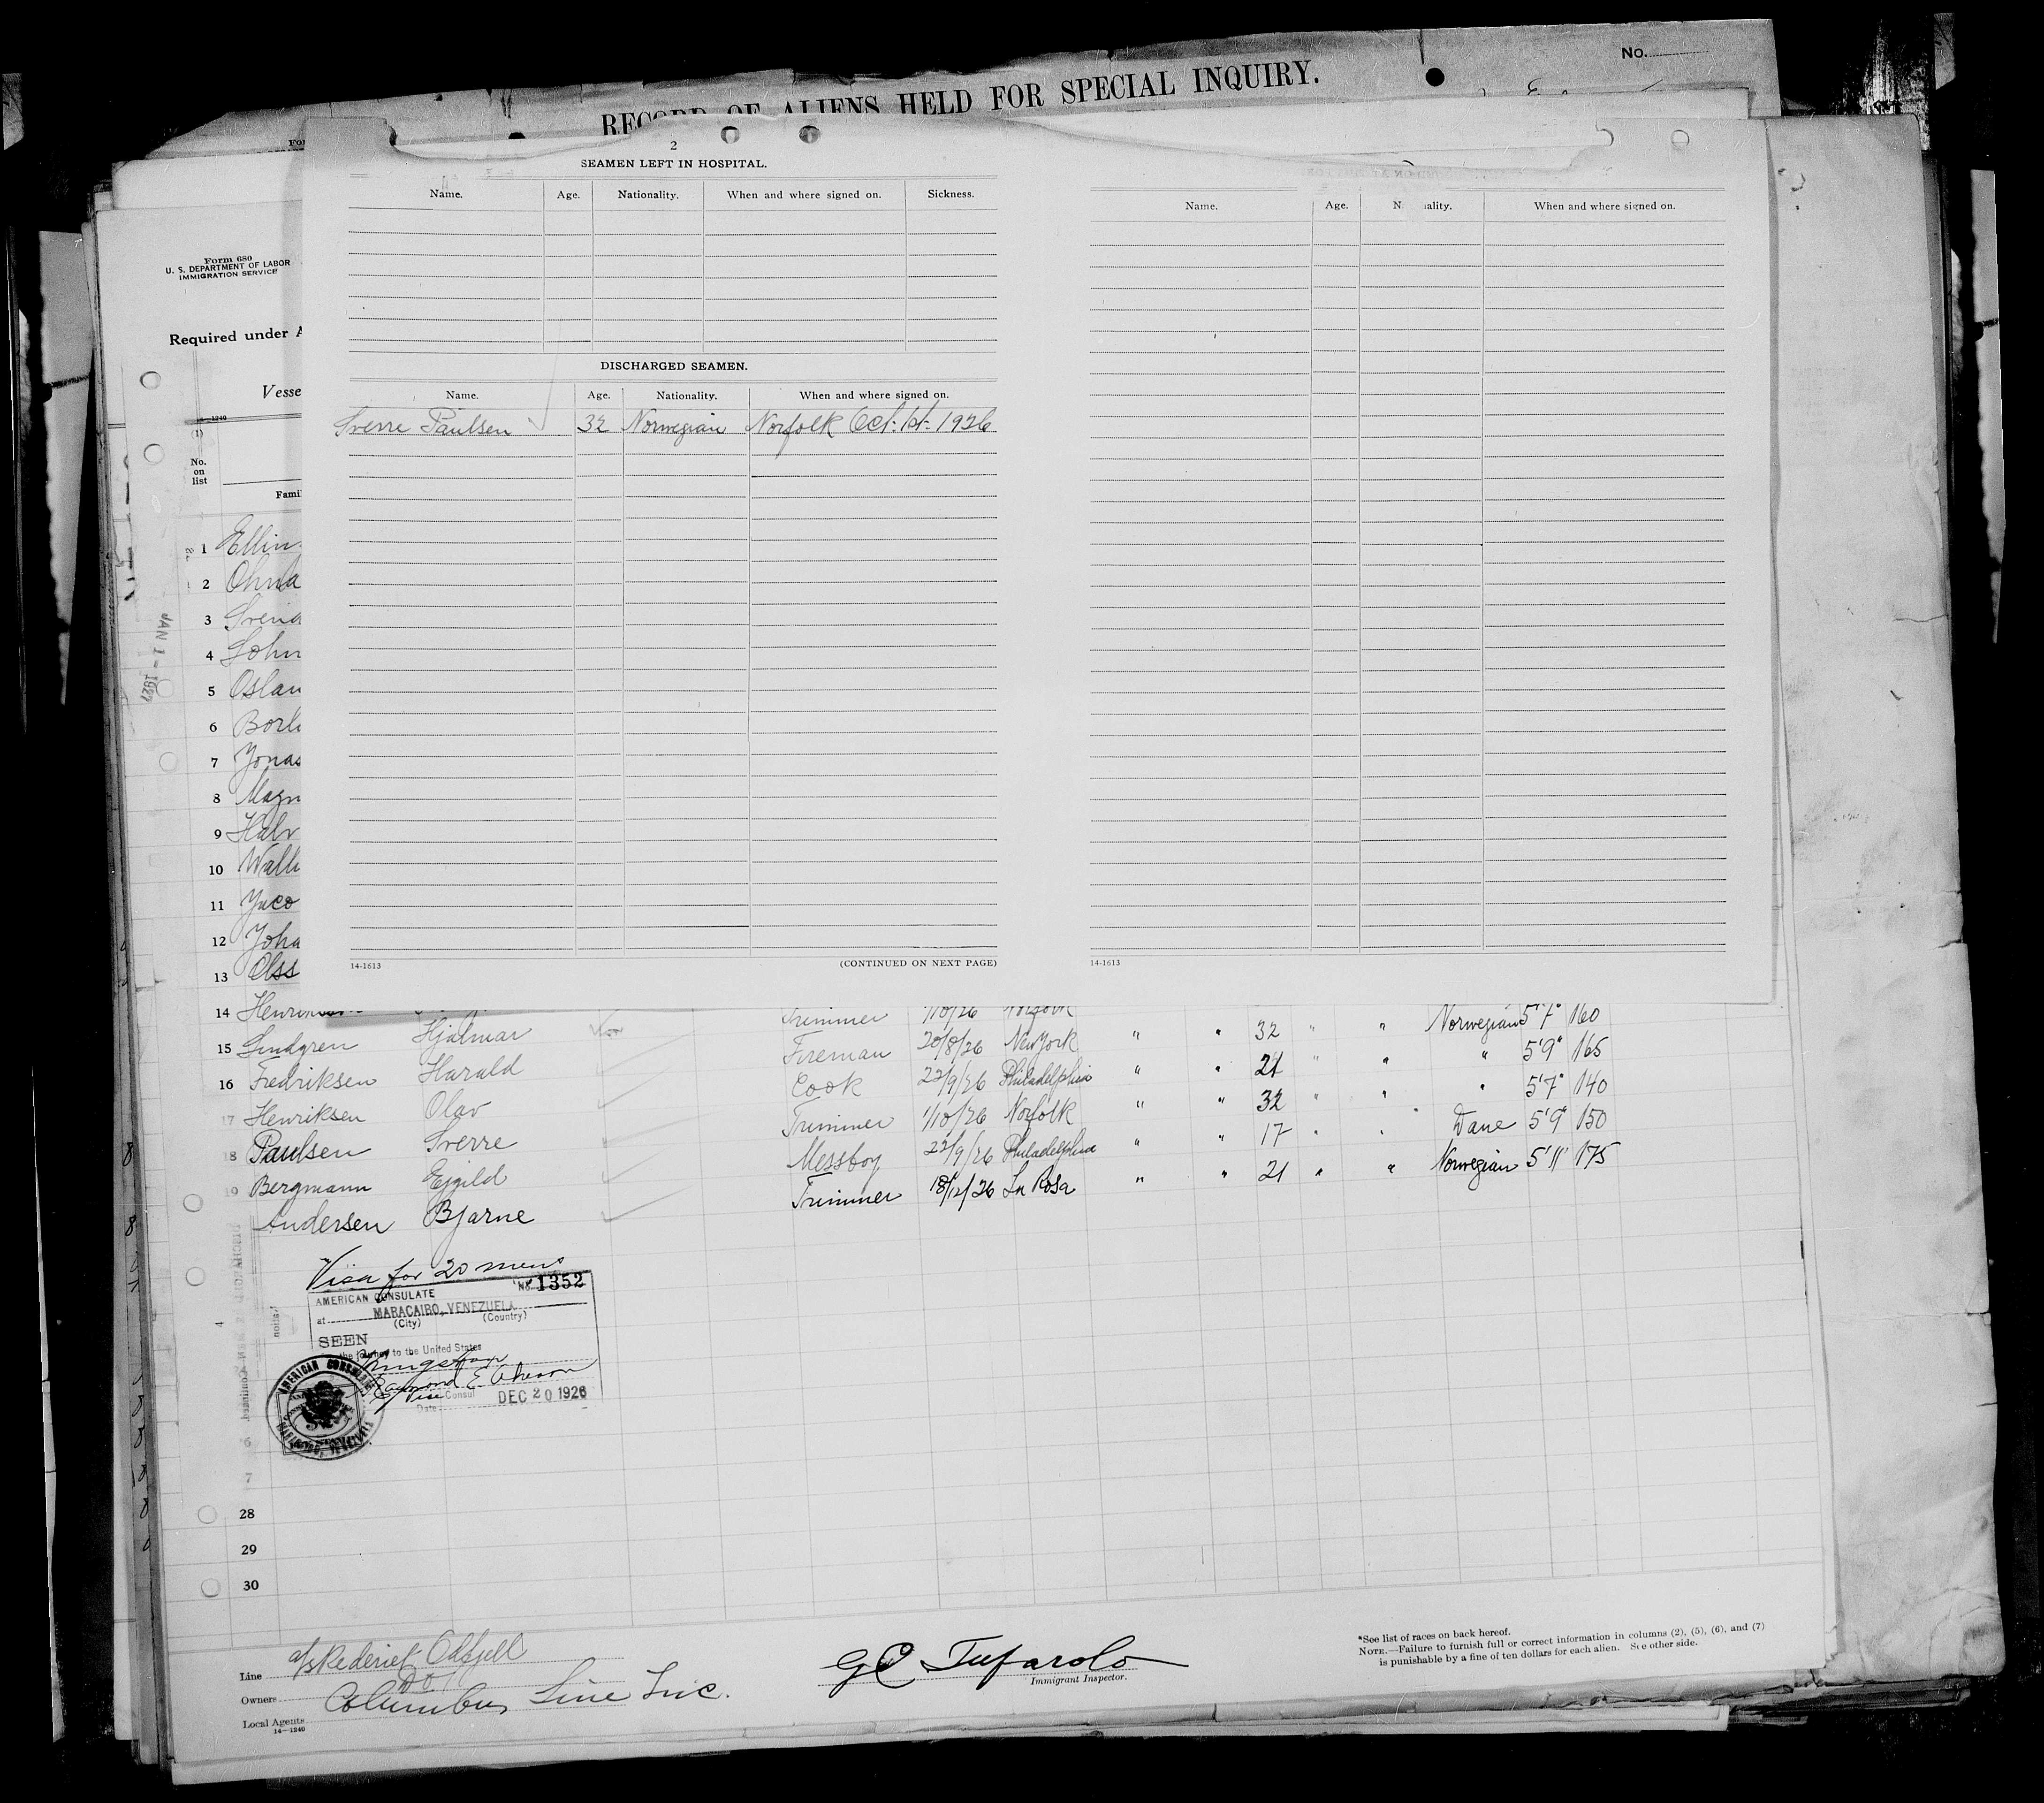 No.
RECORD OF ALIENS HELD FOR SPECIAL INQUIRY.
2
SEAMEN LEFT IN HOSPITAL.
Name. Age. Nationality. When and where signed on. Sickness.
DISCHARGED SEAMEN.
Name. Age. Nationality. When and where signed on.
Sverre Paulsen 32 Norwegian Norfolk Oct. 1st. 1926
14-1613 (CONTINUED ON NEXT PAGE)
Name. Age. N ality. When and where signed on.
14-1613
Form 680
U. S. DEPARTMENT OF LABOR
IMMIGRATION SERVICE
Required under A
Vesse
14-1240
(1)
No. on list
Fami
JAN 1 - 1927
1 Ellin
2 Ohna
3 Svend
4 John
5 Oslan
6 Borl
7 Jonas
8 Magn
9 Halv
10 Wall
11 Jaco
12 Joha
13 Olss
14 Henriksen Trimmer 1/10/26 Norfolk
15 Lindgren Hjalmar Fireman 20/8/26 New York " " 32 " " Norwegian 5'7" 160
16 Fredriksen Harald Cook 22/9/26 Philadelphia " " 21 " " " 5'9" 165
17 Henriksen Olav Trimmer 1/10/26 Norfolk " " 32 " " " 5'7" 140
18 Paulsen Sverre Messboy 22/9/26 Philadelphia " " 17 " " Dane 5'9" 150
19 Bergmann Ejgild Trimmer 18/12/26 La Rosa " " 21 " " Norwegian 5'11" 175
Andersen Bjarne
Visa for 20 mens
AMERICAN CONSULATE No. 1352
at MARACAIBO, VENEZUELA
(City) (Country)
SEEN
the journey to the United States
Kingston
Raymond E.
Vice Consul
Date DEC 20 1926
AMERICAN CONSULATE
MARACAIBO, VENEZUELA
4
6
7
28
29
30
Line A/S Rederiet Odfjell
Owners Do.
Local Agents Columbus Line Inc.
14-1240
G C Tufarolo
Immigrant Inspector.
*See list of races on back hereof.
NOTE.—Failure to furnish full or correct information in columns (2), (5), (6), and (7)
is punishable by a fine of ten dollars for each alien. See other side.